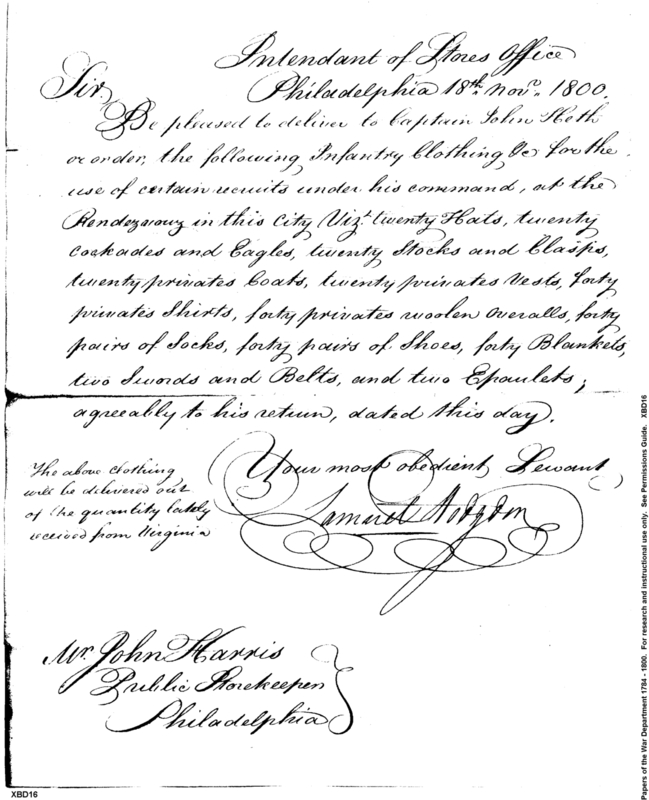 Intendant of Stores Office
Philadelphia 18th. Novr. 1800.
Sir,
Be pleased to deliver to Captain John Heth
or order, the following Infantry Clothing &c for the
use of certain recruits under his command, at the
Rendezvouz in this City Vizt. twenty Hats, twenty
Cockades and Eagles, twenty Stocks and Clasps,
twenty privates Coats, twenty privates Vests, forty
privates Shirts, forty privates woolen Overalls, forty
pairs of Socks, forty pairs of Shoes, forty Blankets,
two Swords and Belts, and two Epaulets;
agreeably to his return, dated this day.
Your most obedient Servant
Samuel Hodgdon
The above clothing
will be delivered out
of the quantity lately
received from Virginia
Mr. John Harris
Public Storekeeper
Philadelphia
XBD16
Papers of the War Department 1784 - 1800. For research and instructional use only. See Permissions Guide. XBD16